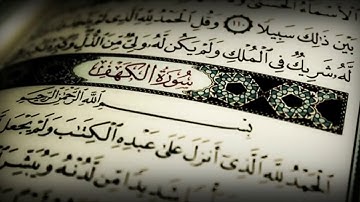 ٱلْأَسْمَآءُ ٱلْحُسْنَىٰ
بَيْنَ ذَٰلِكَ سَبِيلًا ١١٠ وَقُلِ ٱلْحَمْدُ
لَّهُۥ شَرِيكٌ فِى ٱلْمُلْكِ وَلَمْ يَكُن لَّهُۥ وَلِىٌّ مِّنَ ٱلذُّلِّ
سُورَةُ الكَهْفِ
بِسْمِ ٱللَّهِ ٱلرَّحْمَٰنِ ٱلرَّحِيمِ
ٱلْحَمْدُ لِلَّهِ ٱلَّذِىٓ أَنزَلَ عَلَىٰ عَبْدِهِ ٱلْكِتَٰبَ وَلَمْ يَجْعَل
شَدِيدًا مِّن لَّدُنْهُ وَيُبَشِّرَ